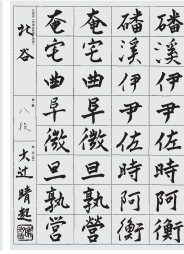 磻溪伊尹佐時阿衡
磻溪伊尹佐時阿衡
奄宅曲阜微旦孰營
奄宅曲阜微旦孰営
北谷
八段
大辻晴